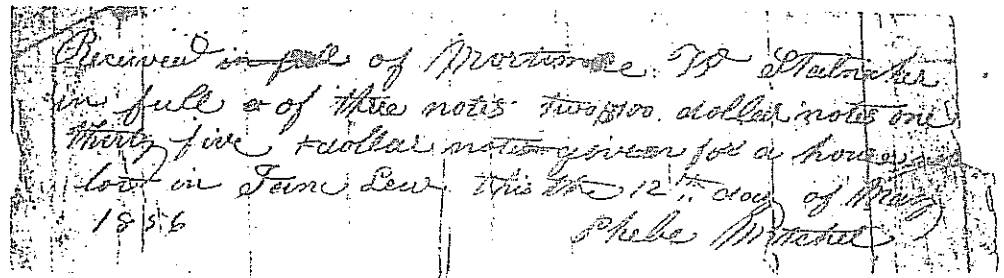 Received in full of Mortimore W
in full of three notes two 100 dollar notes one
thirty five dollar note given for a house
lot in this the 12th day of May
1856
Phebe Mitchel